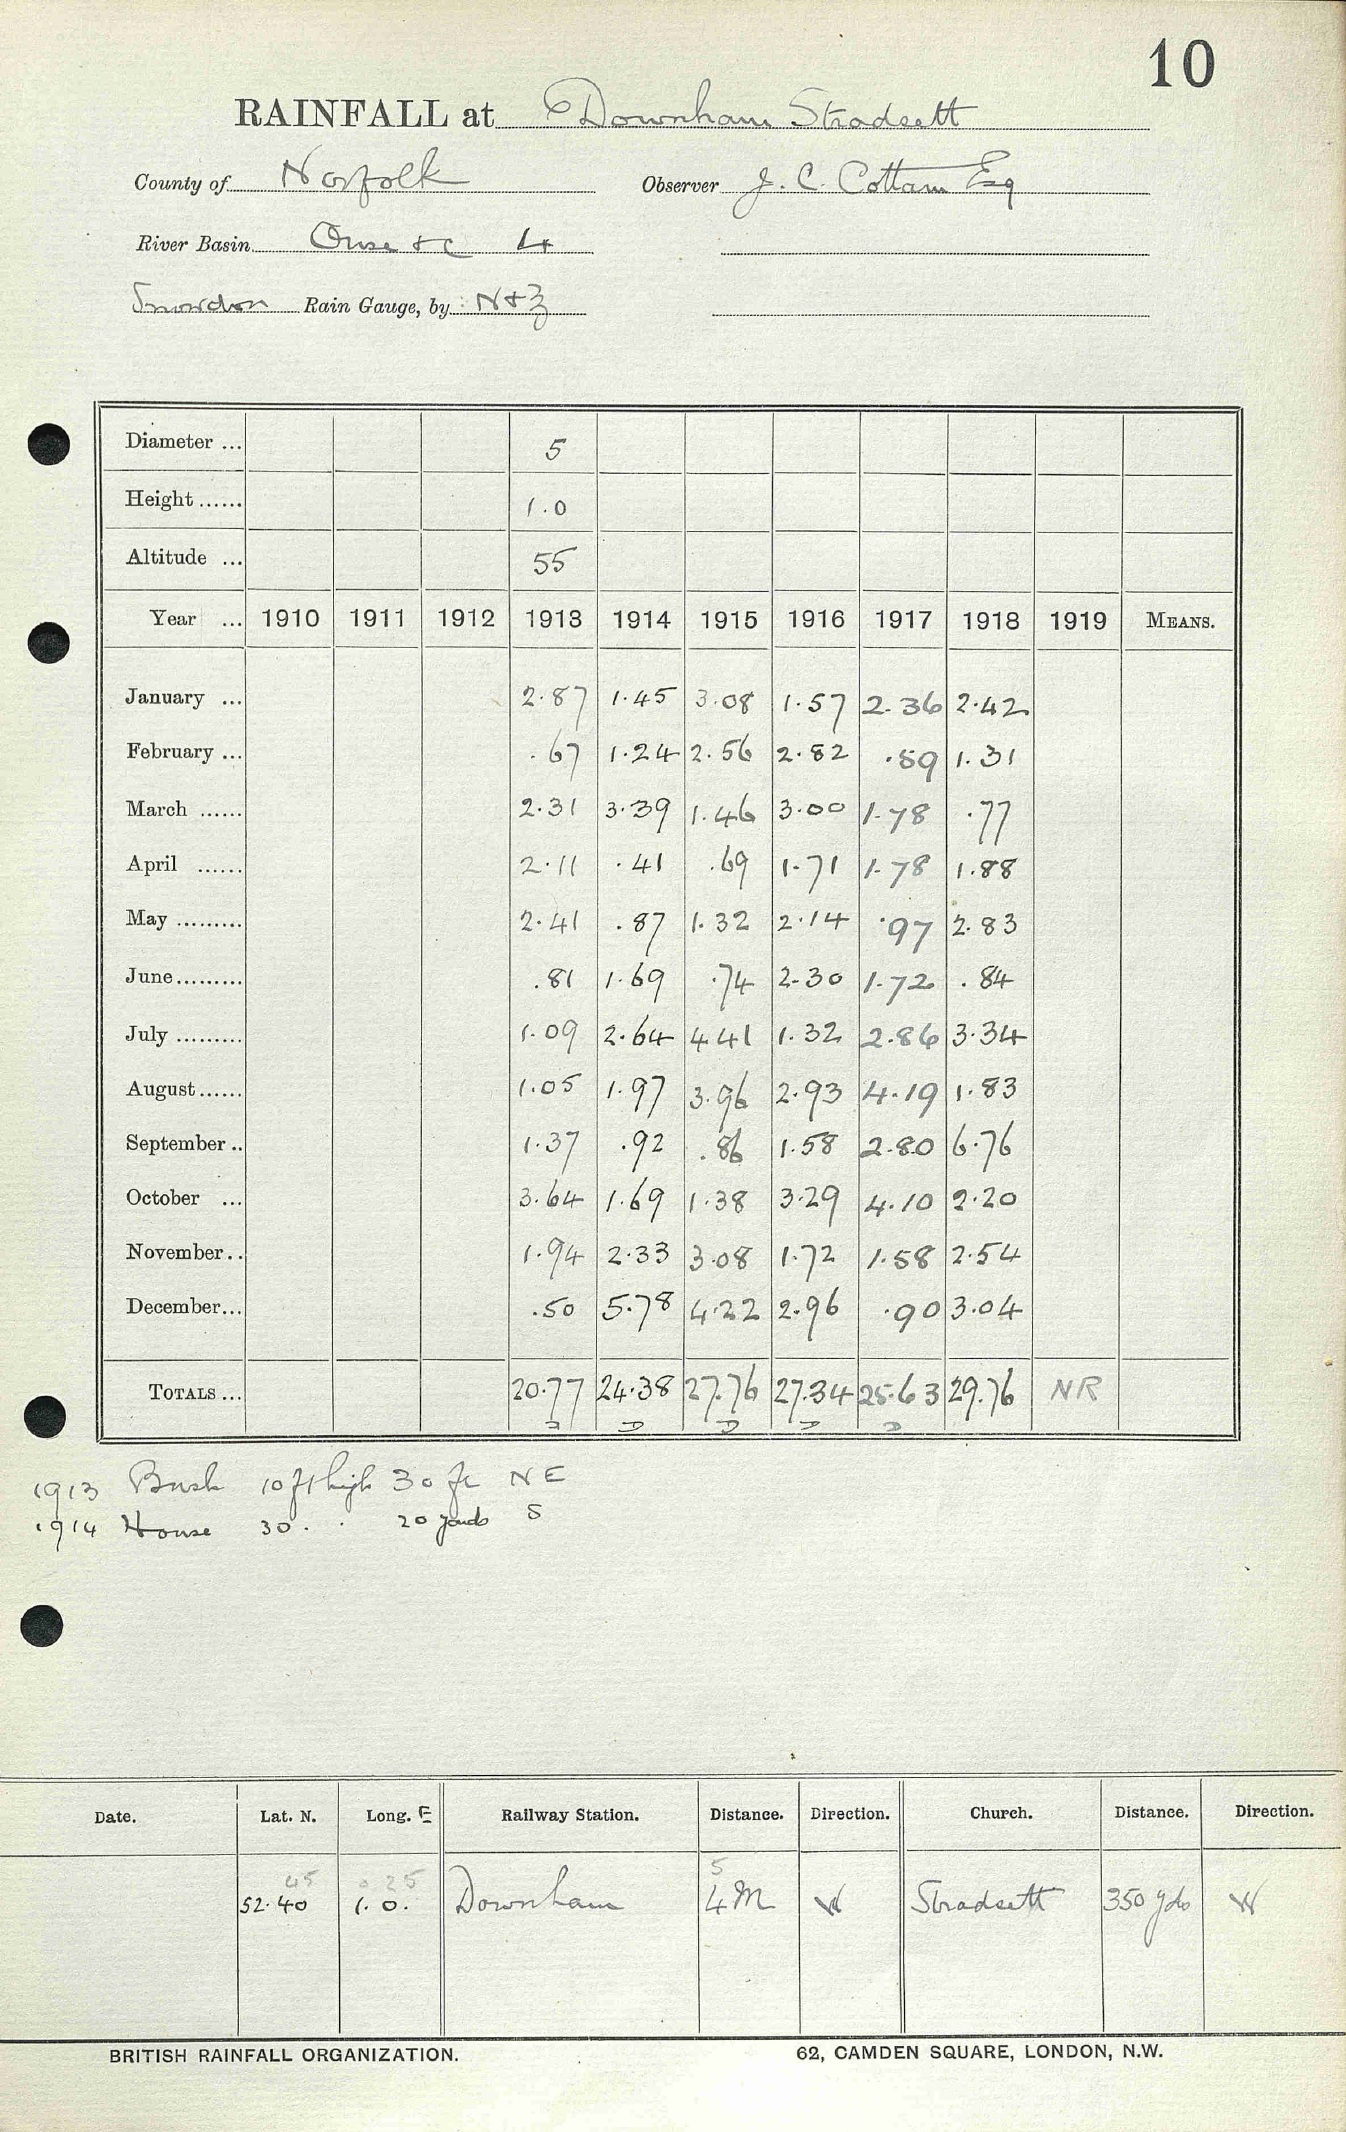 10
RAINFALL at Downham Stradsett
County of Norfolk Observer J. C. Cottam Esq
River Basin Ouse &c 4
Snowdon Rain Gauge, by N+Z
Diameter ... 5
Height ...... 1.0
Altitude ... 55
Year ... 1910 1911 1912 1913 1914 1915 1916 1917 1918 1919 MEANS.
January ... 2.87 1.45 3.08 1.57 2.36 2.42
February ... .67 1.24 2.56 2.82 .89 1.31
March ...... 2.31 3.39 1.46 3.00 1.78 .77
April ...... 2.11 .41 .69 1.71 1.78 1.88
May ......... 2.41 .87 1.32 2.14 .97 2.83
June ......... .81 1.69 .74 2.30 1.72 .84
July ......... 1.09 2.64 4.41 1.32 2.86 3.34
August ...... 1.05 1.97 3.96 2.93 4.19 1.83
September .. 1.37 .92 .86 1.58 2.80 6.76
October ... 3.64 1.69 1.38 3.29 4.10 2.20
November .. 1.94 2.33 3.08 1.72 1.58 2.54
December ... .50 5.78 4.22 2.96 .90 3.04
TOTALS ... 20.77 24.38 27.76 27.34 25.63 29.76 NR
D D D D
1913 Bush 10 ft high 30 ft NE
1914 House 30 . . 20 yards S
Date. Lat. N. Long. E Railway Station. Distance. Direction. Church. Distance. Direction.
45 0 25 5
52.40 1. 0. Downham 4 M W Stradsett 350 yds W
BRITISH RAINFALL ORGANIZATION. 62, CAMDEN SQUARE, LONDON, N.W.